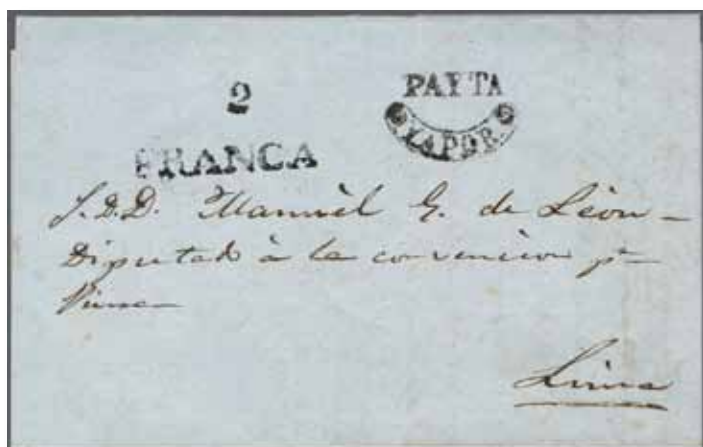 2
PAYTA
VAPOR.
FRANCA
S.D.D. Manuèl G. de Lèon -
Diputado à la convencion pr
Lima